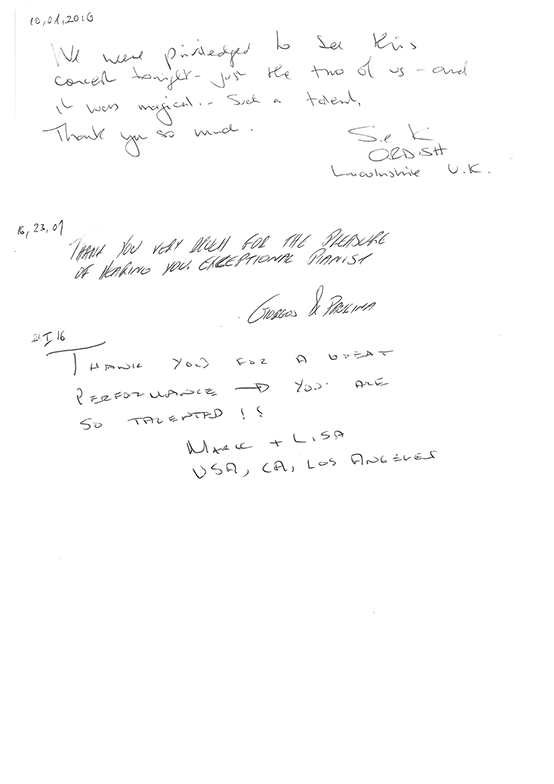 10,01,2016
We were priviledged to see this
concert tonight - just the two of us - and
it was magical. - Such a talent.
Thank you so much.
K
ORDISH
Lincolnshire U.K.
16, 23, 01
THANK YOU VERY MUCH FOR THE PLEASURE
OF HEARING YOU. EXCEPTIONAL PIANIST
GIORGOS & PAULINA
21 I 16
THANK YOU FOR A GREAT
PERFORMANCE → YOU ARE
SO TALENTED !!
MARK + LISA
USA, CA, LOS ANGELES